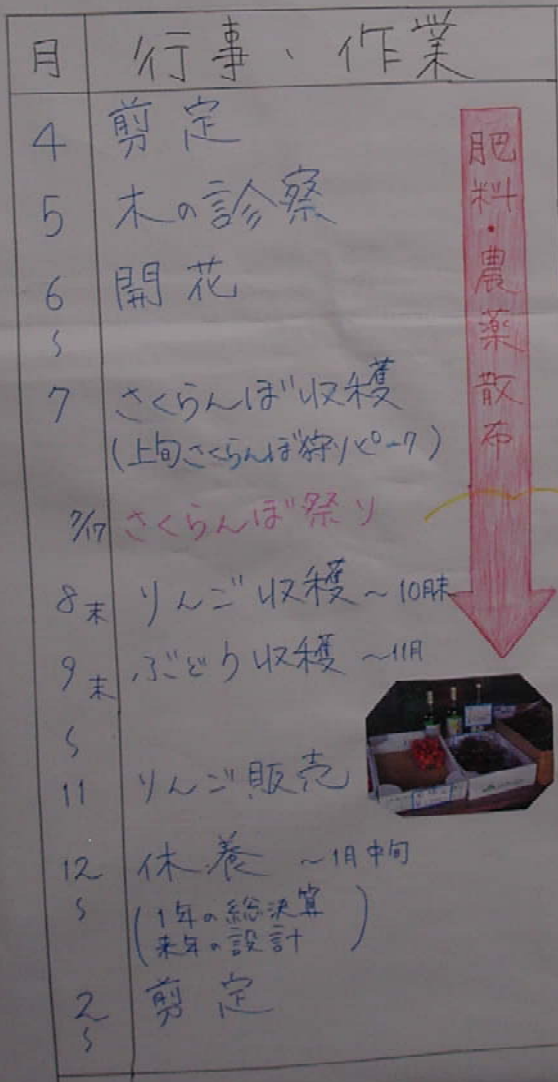 月 行事、作業
4 剪定
5 木の診察
6 開花
〜
7 さくらんぼ収穫
(上旬さくらんぼ狩りピーク)
7/17 さくらんぼ祭り
8末 りんご収穫〜10月末
9末 ぶどう収穫〜11月
〜
11 りんご販売
12 休養 〜1月中旬
〜 (1年の総決算
来年の設計)
2 剪定
〜
肥料・農薬散布